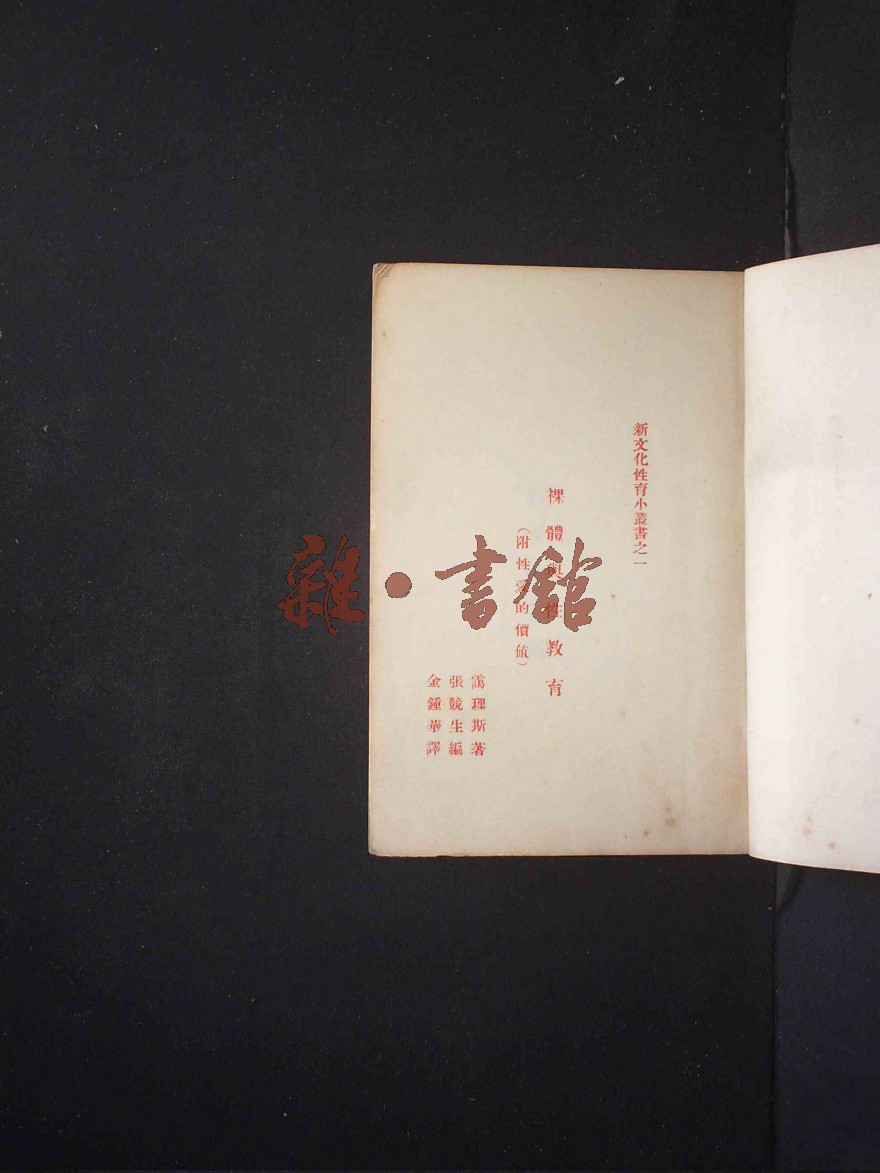 新文化性育小叢書之一
裸體與性教育
（附性愛的價値）
靄理斯著
張競生編
金鍾華譯
雜·書館